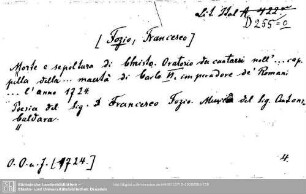 Lit. Ital. A 422
D 255=0
[Fozio, Francesco]
Morte e sepoltura di Christo. Oratorio da cantarsi nell'... cap-
pella della ... maestà di Carlo VI. imperadore de' Romani
... l'anno 1724
Poesia del Sig. D Francesco Fozio. Musica del Sig. Antonio
Caldara.
O. O. u. J. [1724.]
4.